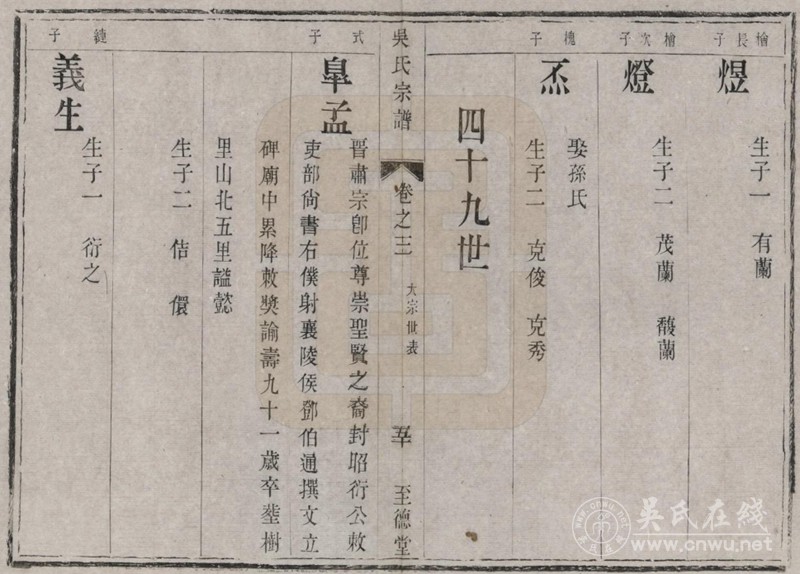 檜長子
煜
生子一　有蘭
檜次子
燈
生子二　茂蘭　馥蘭
槐子
烝
娶孫氏
生子二　克俊　克秀
四十九世
吳氏宗譜
卷之三
大宗世表
至德堂
式子
臯孟
晉肅宗卽位尊崇聖賢之裔封昭衍公敕
吏部尚書右僕射襄陵侯鄧伯通撰文立
碑廟中累降敕獎諭壽九十一歲卒塟樹
里山北五里謚懿
生子二　佶　儇
縺子
義生
生子一　衍之
吳氏在綫
www.cnwu.net